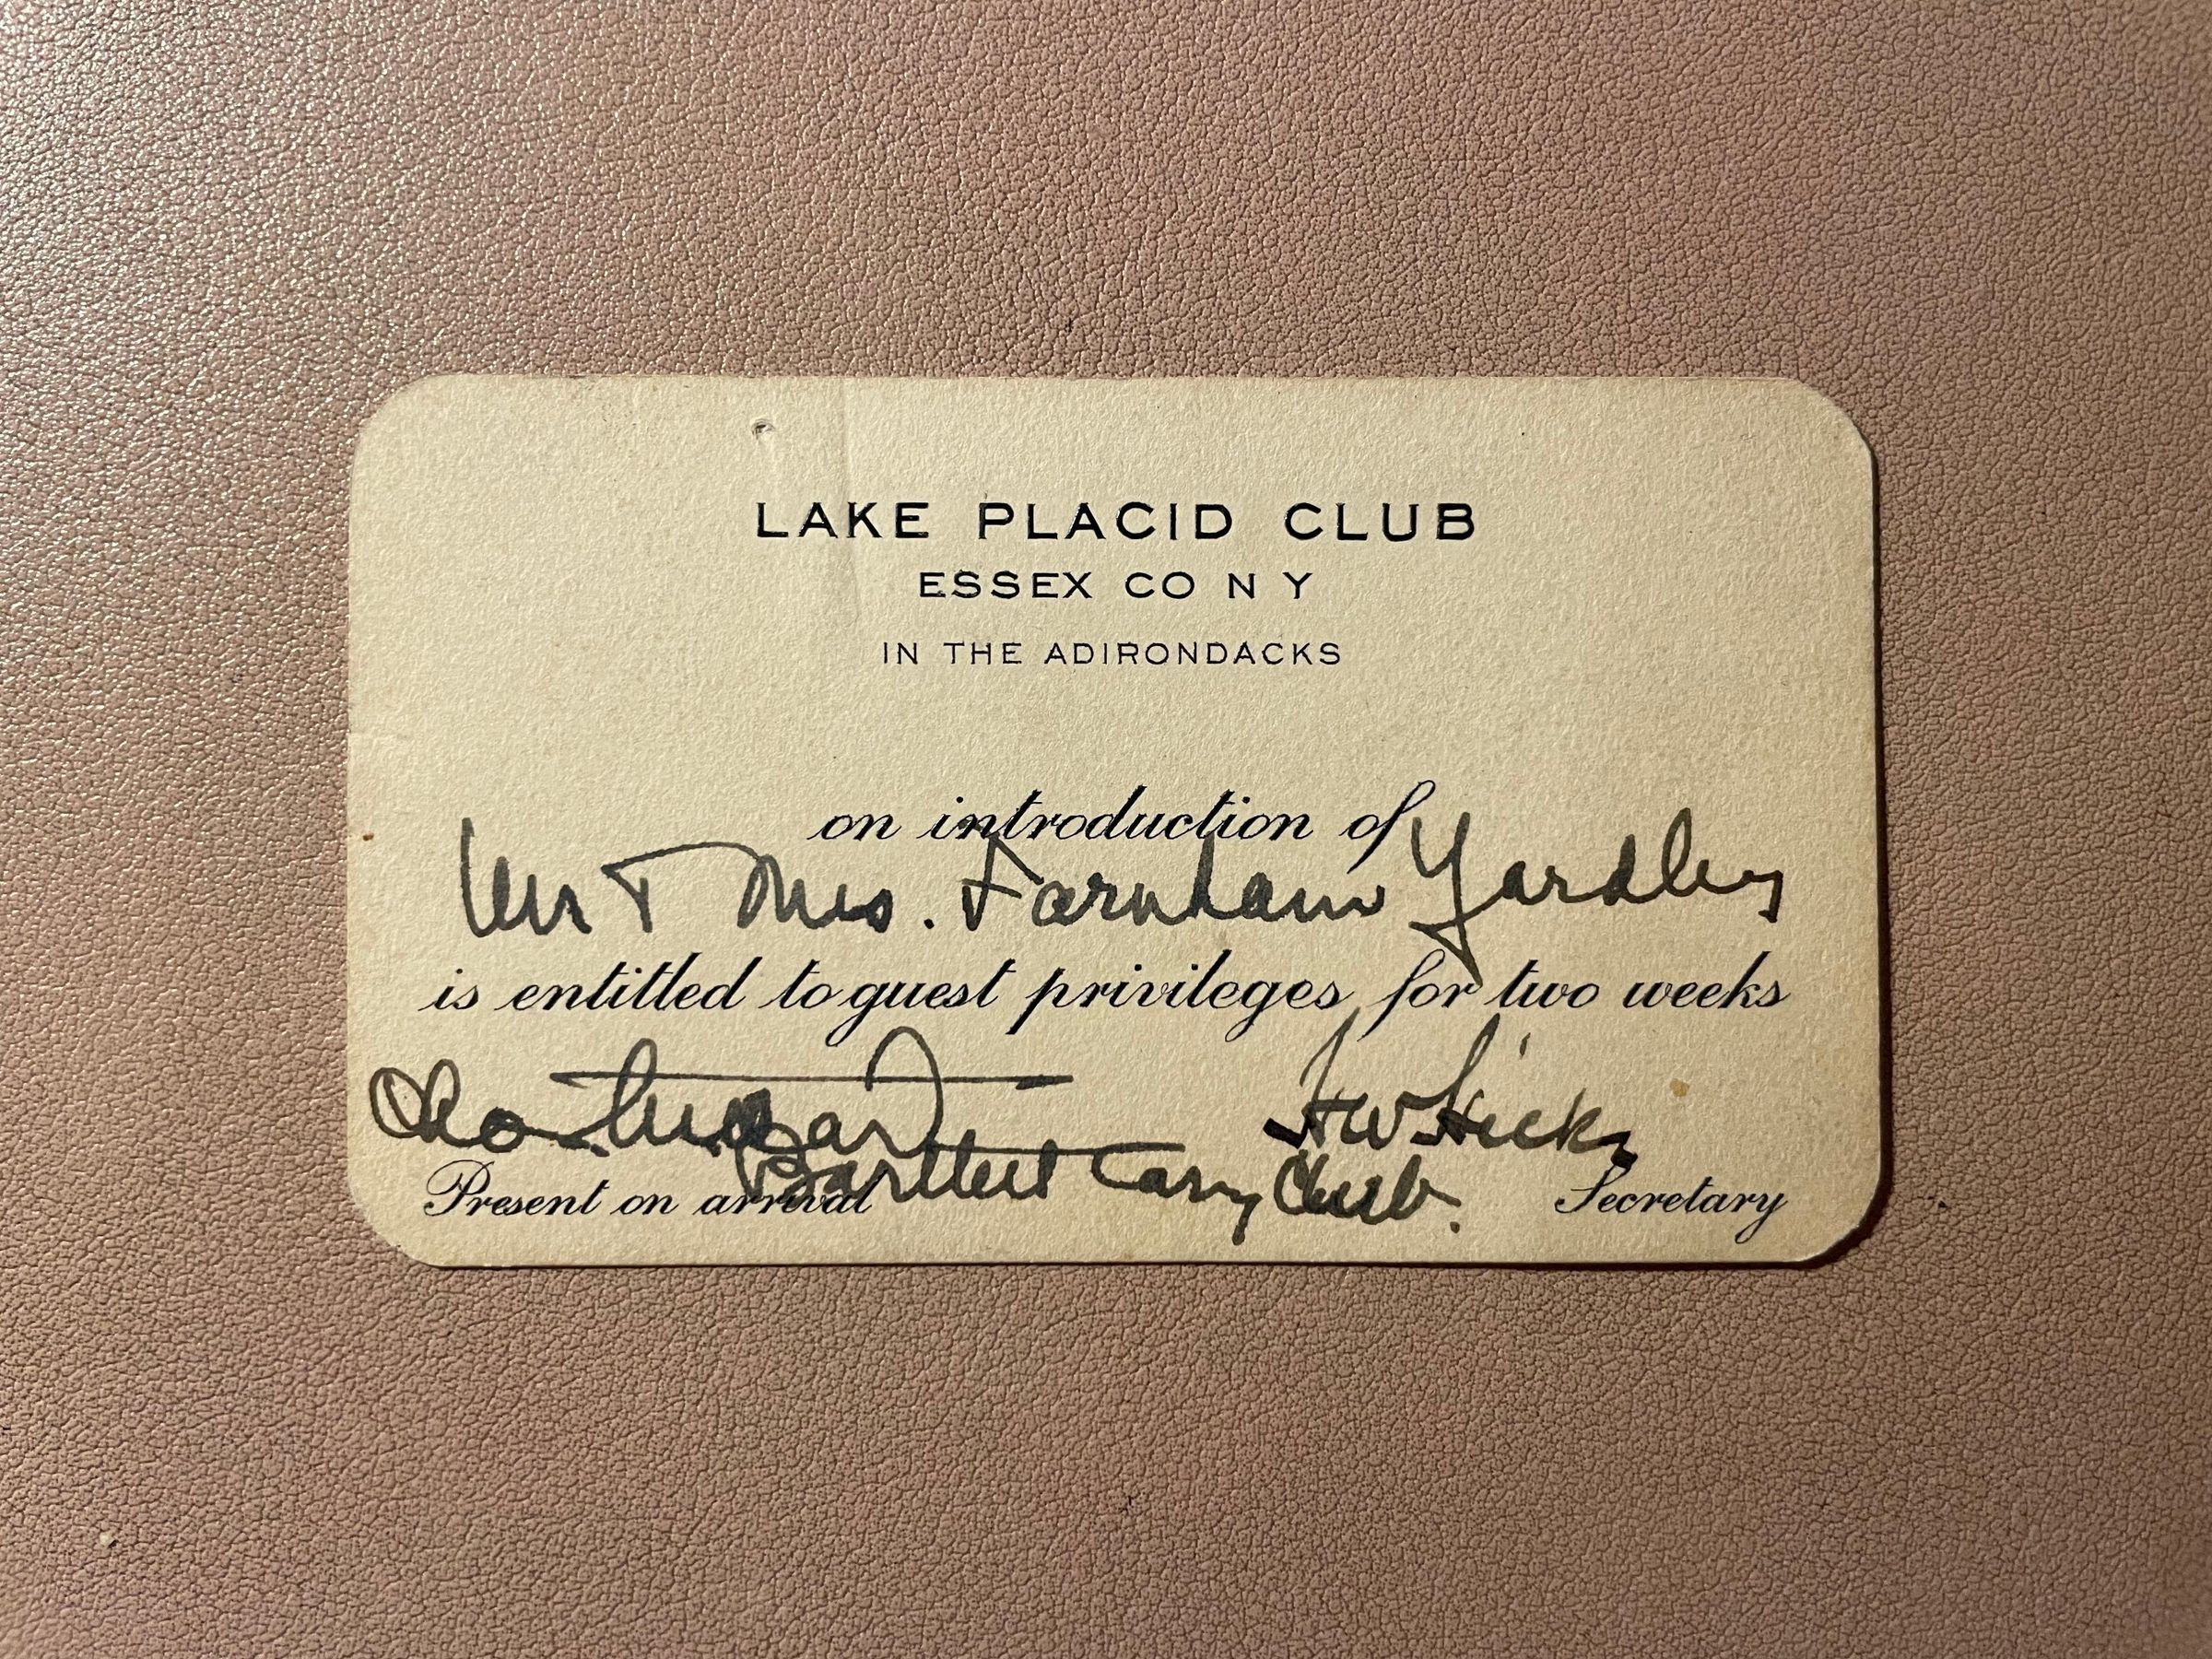 LAKE PLACID CLUB
ESSEX CO N Y
IN THE ADIRONDACKS
on introduction of
Mr & Mrs. Farnham Yardley
is entitled to guest privileges for two weeks
H W Hicks
Bartlett Carry Club.
Present on arrival Secretary